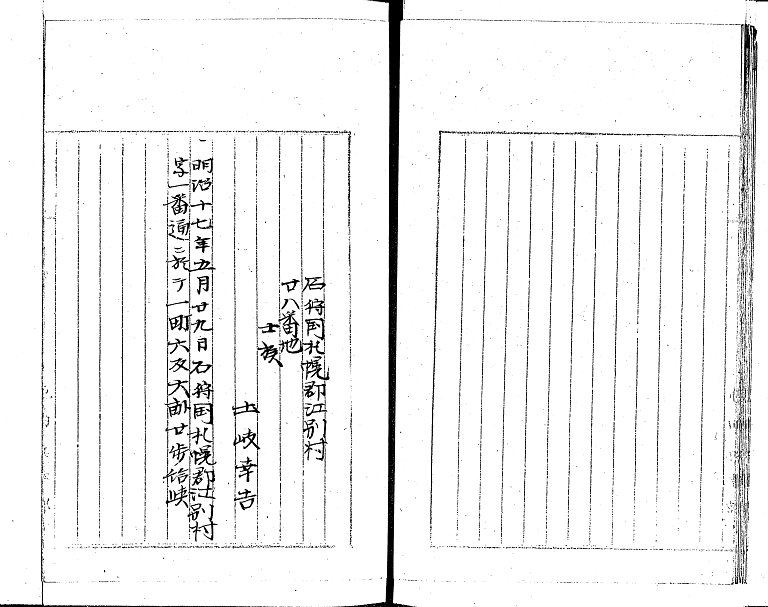 石狩国札幌郡江別村
廿八番地
士族
土岐幸吉
一 明治十七年五月廿九日石狩国札幌郡江別村
字一番通ニ於テ一町六反六畝廿歩給